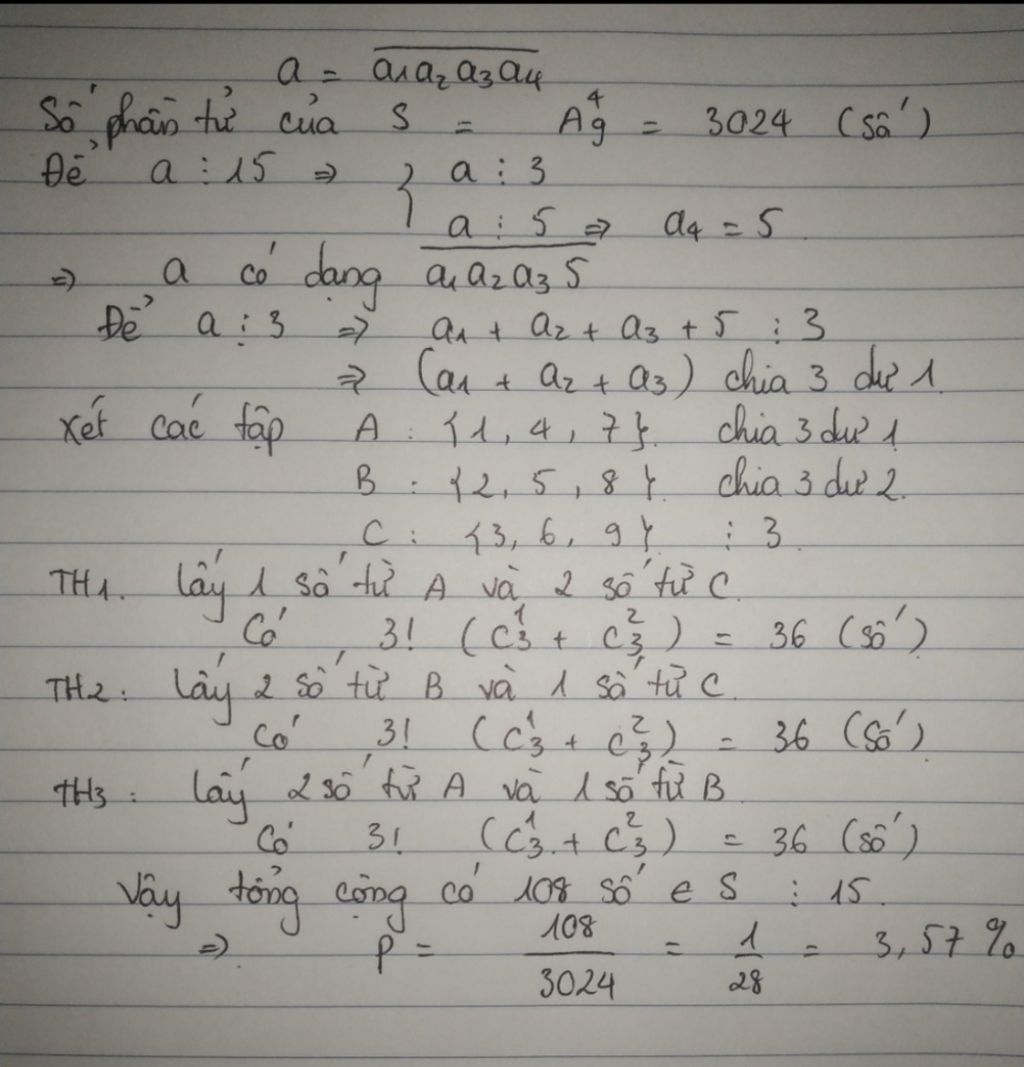 a = a1a2a3a4
Số phần tử của S = A⁴₉ = 3024 (số)
Để a ⋮ 15 ⇒ { a ⋮ 3
a ⋮ 5 ⇒ a4 = 5
⇒ a có dạng a1a2a35
Để a ⋮ 3 ⇒ a1 + a2 + a3 + 5 ⋮ 3
⇒ (a1 + a2 + a3) chia 3 dư 1
Xét các tập A : {1, 4, 7}. chia 3 dư 1
B : {2, 5, 8}. chia 3 dư 2.
C : {3, 6, 9} ⋮ 3.
TH1. Lấy 1 số từ A và 2 số từ C.
Có 3! (C¹₃ + C²₃) = 36 (số)
TH2: Lấy 2 số từ B và 1 số từ C.
Có 3! (C¹₃ + C²₃) = 36 (số)
TH3: Lấy 2 số từ A và 1 số từ B
Có 3! (C¹₃ + C²₃) = 36 (số)
Vậy tổng cộng có 108 số e S ⋮ 15.
⇒ P = 108/3024 = 1/28 = 3,57 %